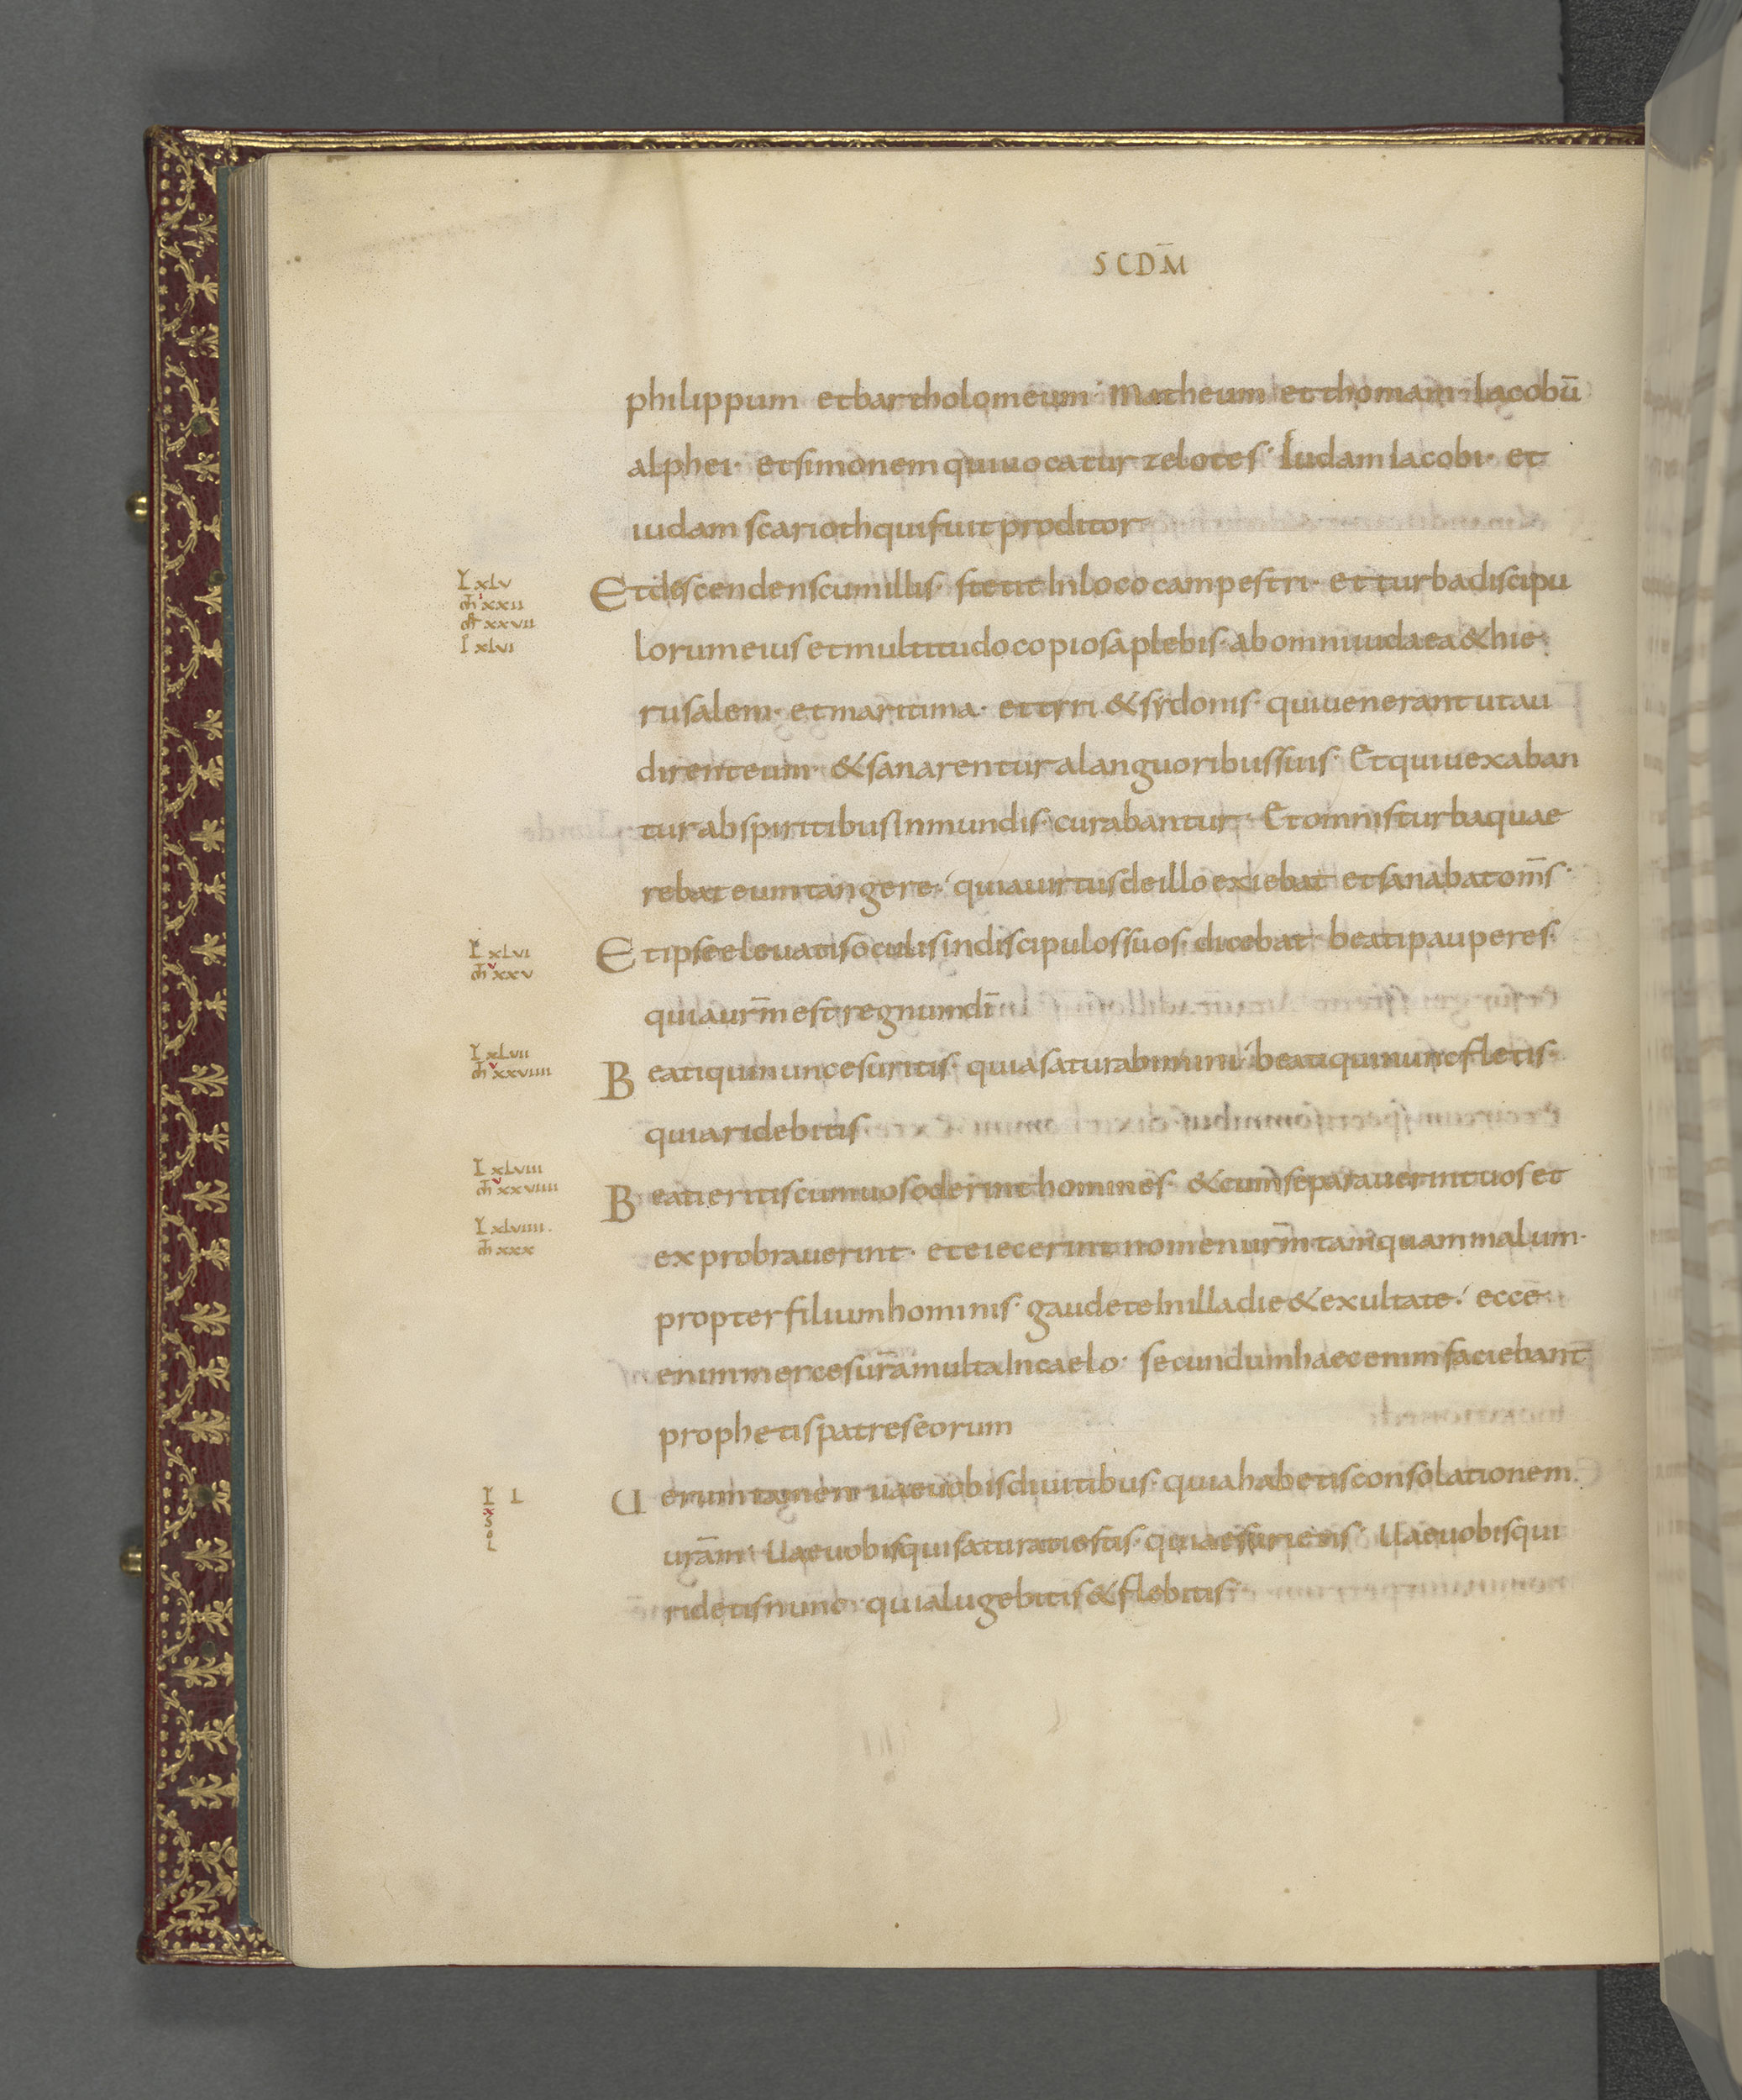 SCDM̄
philippum et bartholomeum· Matheum et thomam· Iacobū
alphei· et simonem qui uocatur zelotes· Iudam Iacobi· et
iudam scarioth qui fuit proditor
Et descendens cum illis· stetit In loco campestri· et turba discipu
I xlv
m̄ xxii
m̄r xxvii
I xlvi
lorum eius et multitudo copiosa plebis· ab omni iudaea & hie
rusalem· et maritima· et tyri & sydonis· qui uenerant ut au
dirent eum· & sanarentur a languoribus suis· Et qui uexaban
tur ab spiritibus Inmundis· curabantur· Et omnis turba quae
rebat eum tangere· quia uirtus de illo exiebat et sanabat om̄s·
Et ipse eleuatis oculis in discipulos suos· dicebat· beati pauperes·
I xlvi
m̄ xxv
quia ur̄m est regnum dī
Beati qui nunc esuritis· quia saturabimini· beati qui nunc fletis·
I xlvii
m̄ xxviii
quia ridebitis
Beati eritis cum uos oderint homines· & cum separauerint uos et
I xlviii
m̄ xxviiii
exprobrauerint· et eiecerint nomen ur̄m tamquam malum·
I xlviiii·
m̄ xxx
propter filium hominis· gaudete In illa die & exultate· ecce
enim merces ur̄a multa In caelo· secundum haec enim faciebant
prophetis patres eorum
Uerum tamen uae uobis diuitibus· quia habetis consolationem
I L
x
sol
ur̄am· Uae uobis qui saturati estis· quia esurietis· Uae uobis qui
ridetis nunc· quia lugebitis & flebitis·